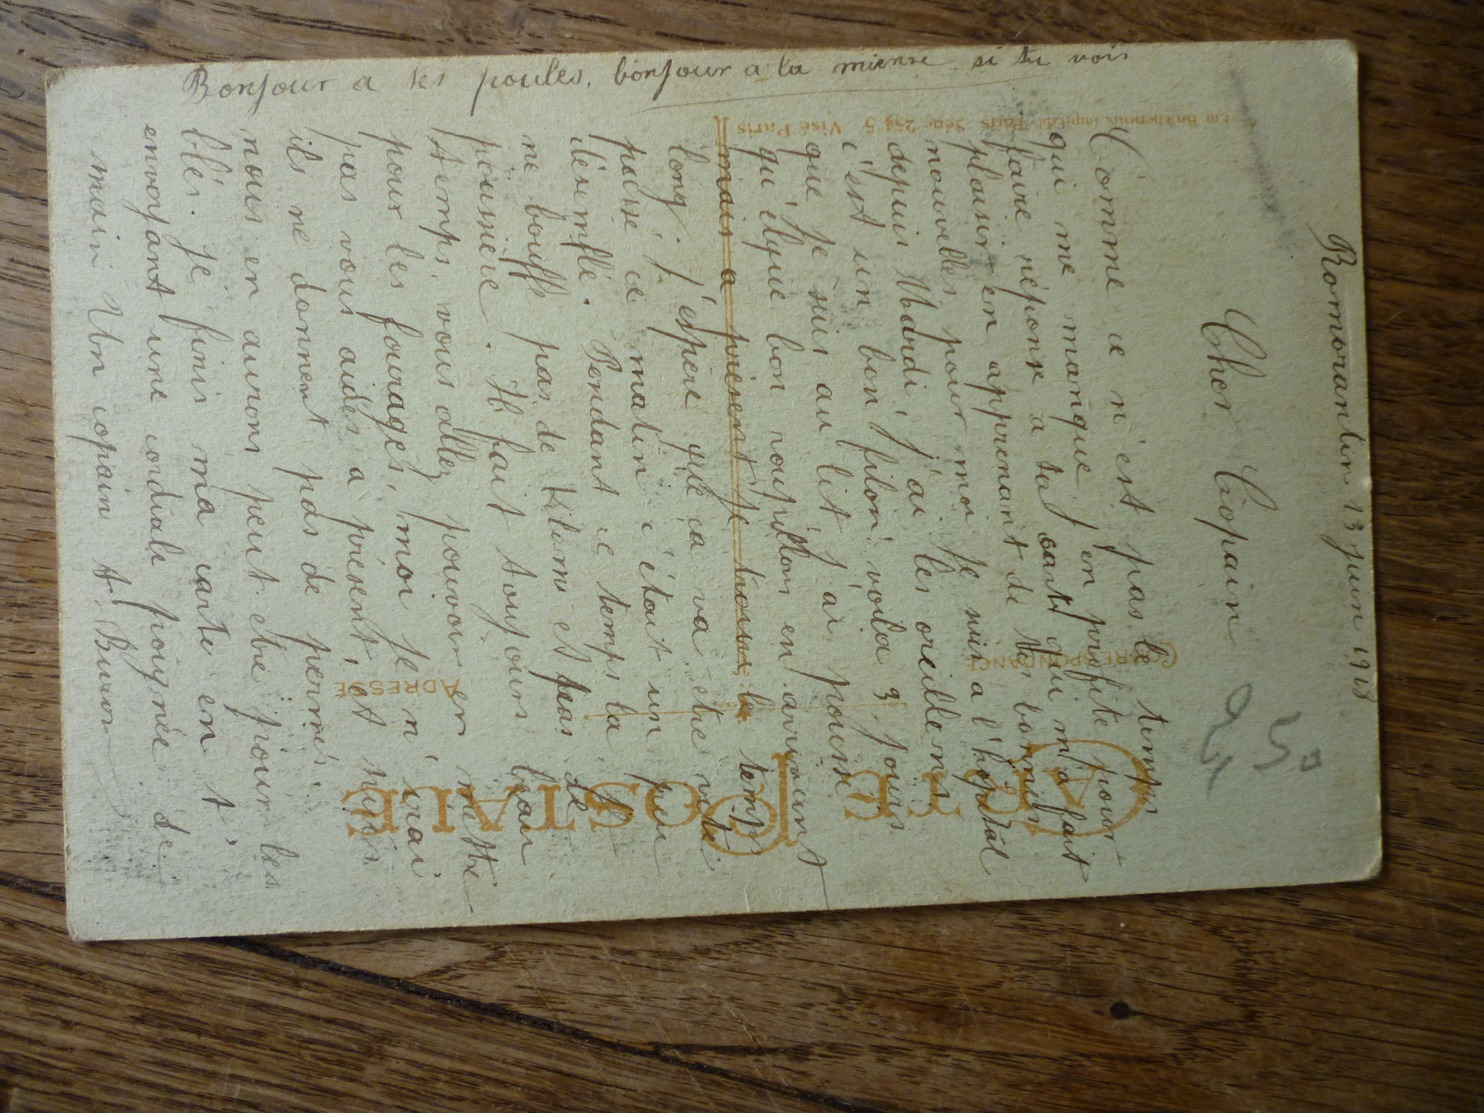 Romorantin 13 juin 1918
Cher Copain
Comme ce n'est pas le temps
qui me manque j'en profite pour
faire réponse a ta carte qui m'a fait
plaisir en apprenant de tes bonnes
nouvelles pour moi je suis a l'hopital
depuis Mardi, j'ai les oreillons
c'est un bon filon, voila 3 jours
que je suis au lit j'ai
qu'élque bon roupillon en arrivant
mais a présent je trouve le temps
long. J'éspère que ca va être vite
passé ce matin c'était un peu
désemflé. Pendant ce temps la l
ne bouffe pas de klams et pas de
poussière. Il fait toujours beau
temps, vous allez pouvoir en mettre
pour les fourages, moi je n'irai
pas vous aider a présent, et puis
ils ne donnent pas de permes,
nous en aurons peut etre pour les
blés. Je finis ma carte en t',
envoyant une cordiale poignée de
main Un copain t Buron
Bonjour a tes poules, bonjour a la mienne si tu vois
2 50
CARTE POSTALE
CORRESPONDANCE
ADRESSE
Visé Paris